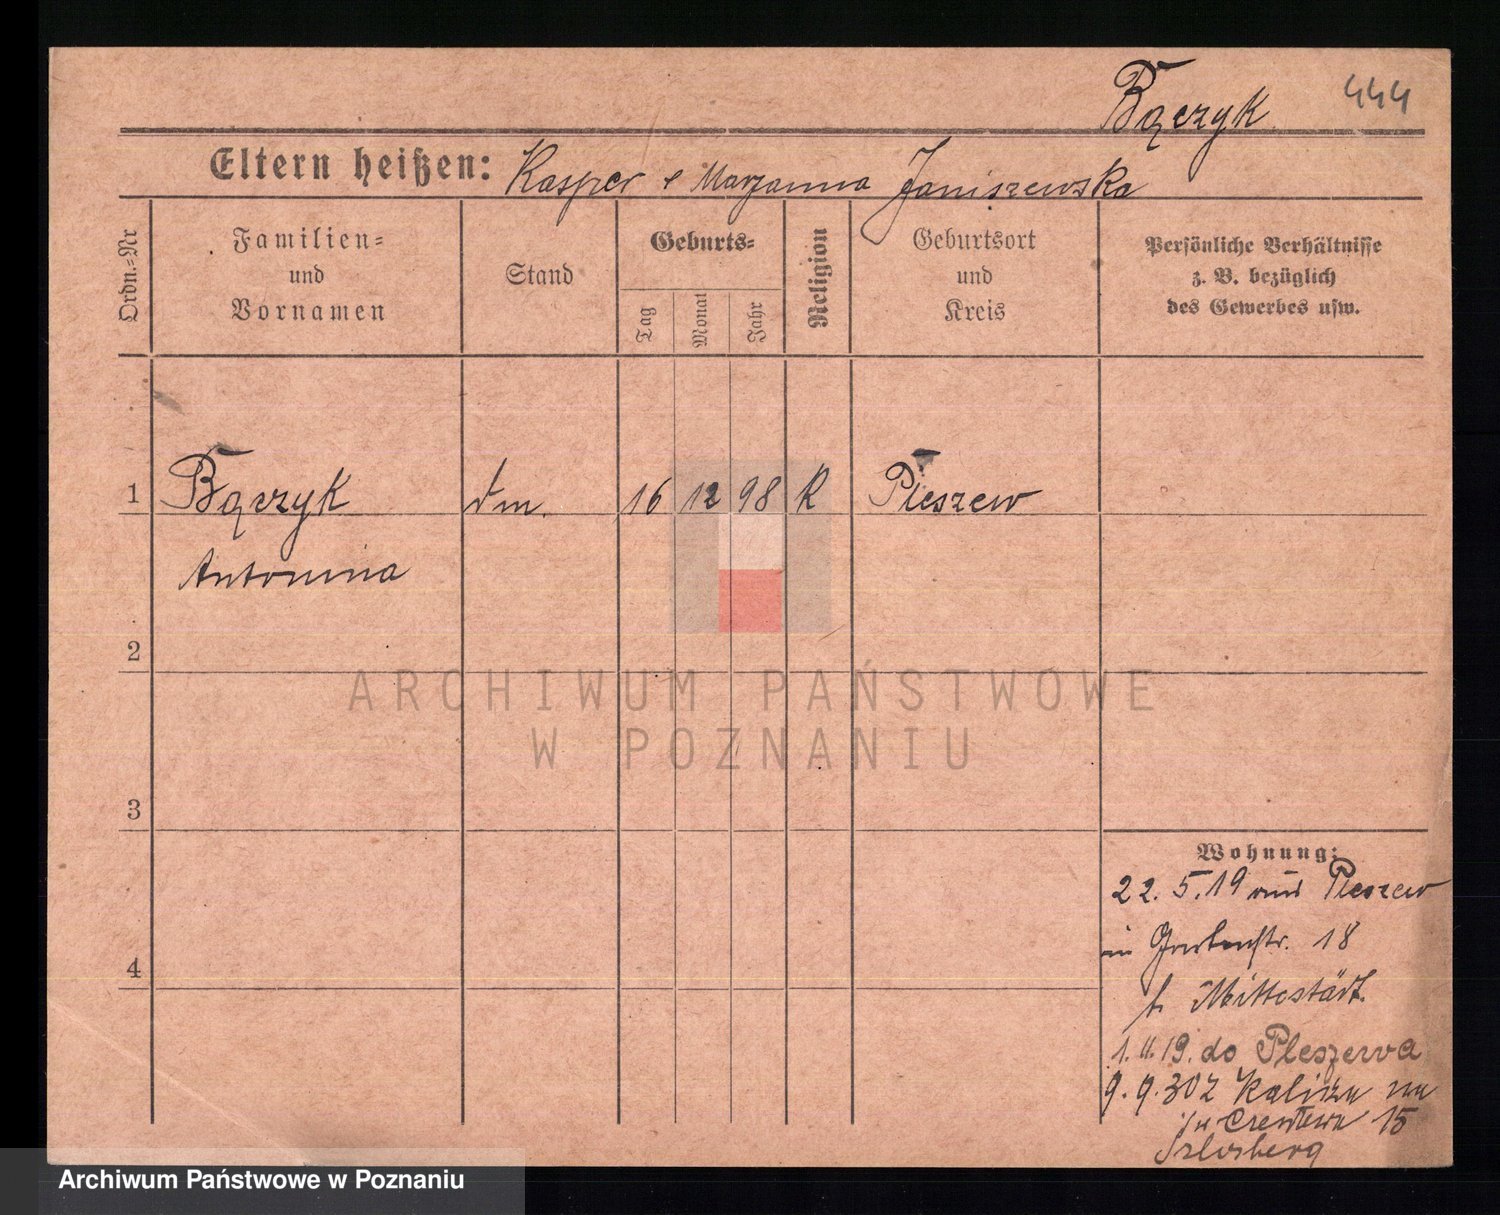 Bączyk 444
Eltern heißen: Kasper e Maryanna Janiszewska
Ordn.-Nr
Familien-
und
Vornamen
Stand
Geburts-
Tag
Monat
Jahr
Religion
Geburtsort
und
Kreis
Persönliche Verhältnisse
z. B. bezüglich
des Gewerbes usw.
1 Bączyk dm. 16 12 98 R Pleszew
Antonina
2
ARCHIWUM PAŃSTWOWE
W POZNANIU
3
Wohnung:
22.5.19 aus Pleszew
in Gartenstr. 18
b. Mittestädt.
4
1.11.19. do Pleszewa
9.9.30 z Kalisza na
15
Archiwum Państwowe w Poznaniu